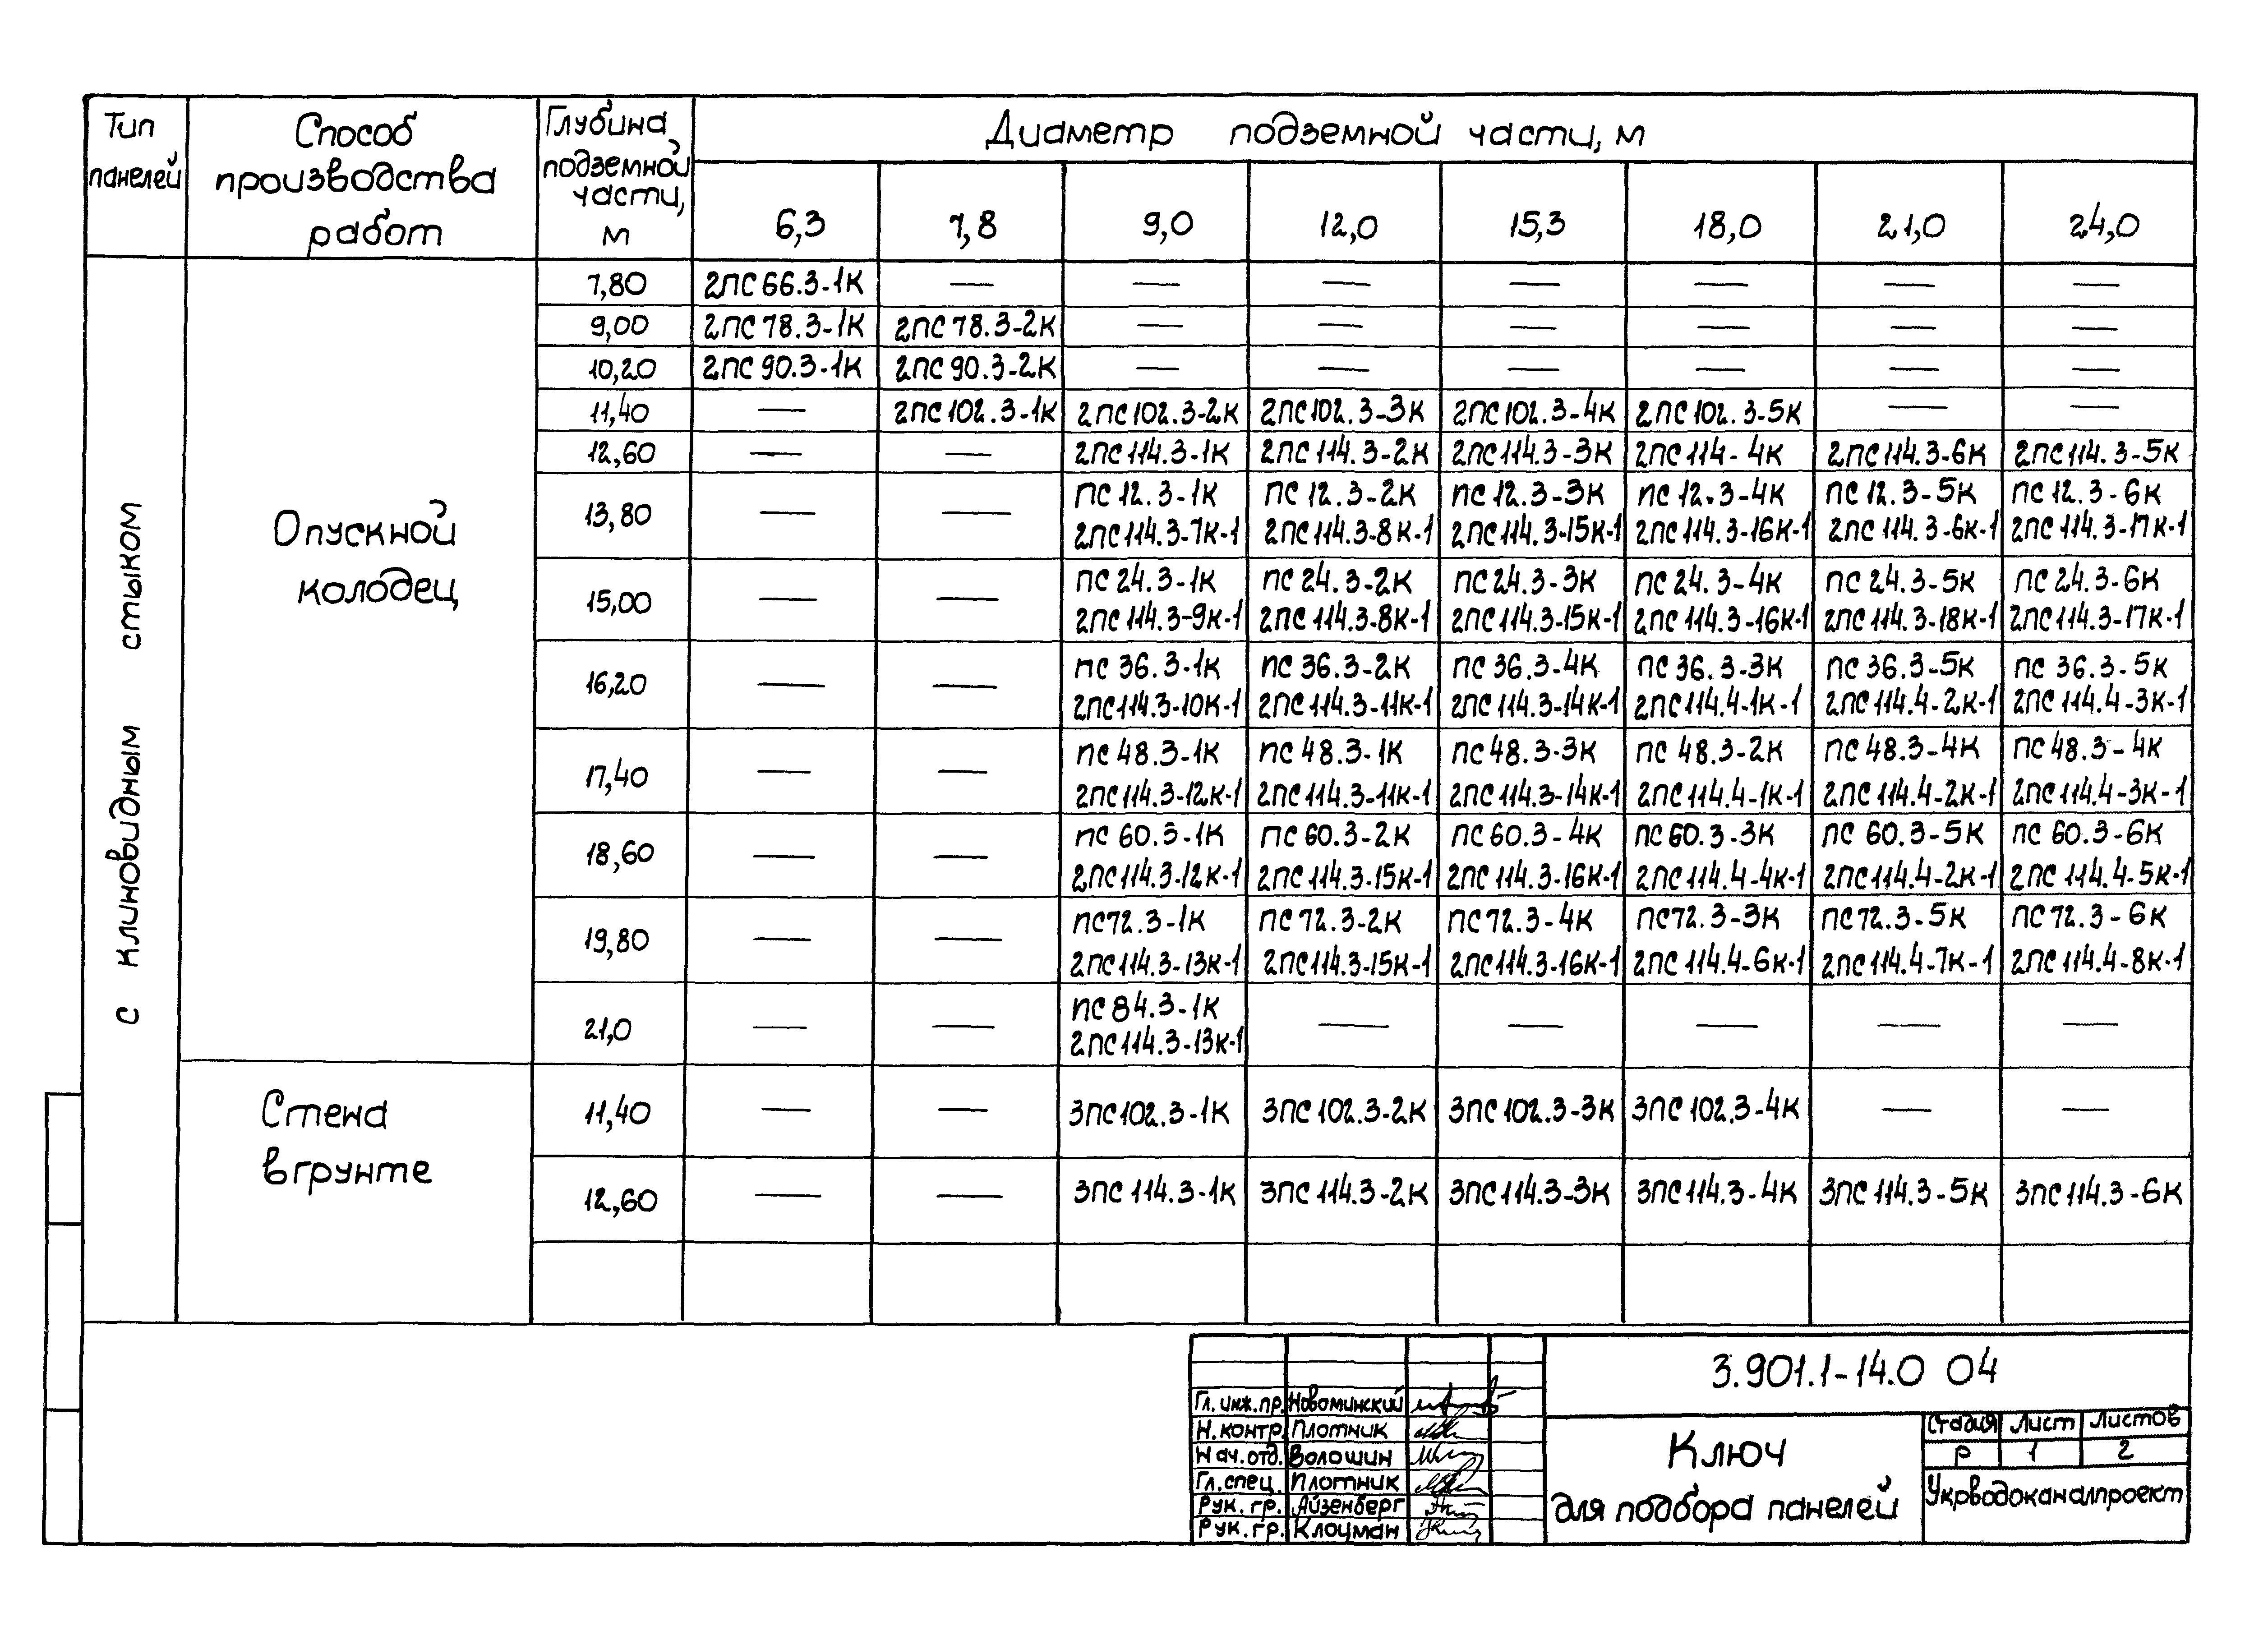 Тип панелей
Способ производства работ
Глубина подземной части, м
Диаметр подземной части, м
6,3 7,8 9,0 12,0 15,3 18,0 21,0 24,0
с клиновидным стыком
Опускной колодец
7,80 2ПС66.3-1К — — — — — — —
9,00 2ПС78.3-1К 2ПС78.3-2К — — — — — —
10,20 2ПС90.3-1К 2ПС90.3-2К — — — — — —
11,40 — 2ПС102.3-1К 2ПС102.3-2К 2ПС102.3-3К 2ПС102.3-4К 2ПС102.3-5К — —
12,60 — — 2ПС114.3-1К 2ПС114.3-2К 2ПС114.3-3К 2ПС114-4К 2ПС114.3-6К 2ПС114.3-5К
13,80 — — ПС12.3-1К ПС12.3-2К ПС12.3-3К ПС12.3-4К ПС12.3-5К ПС12.3-6К
2ПС114.3-7К-1 2ПС114.3-8К-1 2ПС114.3-15К-1 2ПС114.3-16К-1 2ПС114.3-6К-1 2ПС114.3-17К-1
15,00 — — ПС24.3-1К ПС24.3-2К ПС24.3-3К ПС24.3-4К ПС24.3-5К ПС24.3-6К
2ПС114.3-9К-1 2ПС114.3-8К-1 2ПС114.3-15К-1 2ПС114.3-16К-1 2ПС114.3-18К-1 2ПС114.3-17К-1
16,20 — — ПС36.3-1К ПС36.3-2К ПС36.3-4К ПС36.3-3К ПС36.3-5К ПС36.3-5К
2ПС114.3-10К-1 2ПС114.3-11К-1 2ПС114.3-14К-1 2ПС114.4-1К-1 2ПС114.4-2К-1 2ПС114.4-3К-1
17,40 — — ПС48.3-1К ПС48.3-1К ПС48.3-3К ПС48.3-2К ПС48.3-4К ПС48.3-4К
2ПС114.3-12К-1 2ПС114.3-11К-1 2ПС114.3-14К-1 2ПС114.4-1К-1 2ПС114.4-2К-1 2ПС114.4-3К-1
18,60 — — ПС60.3-1К ПС60.3-2К ПС60.3-4К ПС60.3-3К ПС60.3-5К ПС60.3-6К
2ПС114.3-12К-1 2ПС114.3-15К-1 2ПС114.3-16К-1 2ПС114.4-4К-1 2ПС114.4-2К-1 2ПС114.4-5К-1
19,80 — — ПС72.3-1К ПС72.3-2К ПС72.3-4К ПС72.3-3К ПС72.3-5К ПС72.3-6К
2ПС114.3-13К-1 2ПС114.3-15К-1 2ПС114.3-16К-1 2ПС114.4-6К-1 2ПС114.4-7К-1 2ПС114.4-8К-1
21,0 — — ПС84.3-1К — — — — —
2ПС114.3-13К-1
Стена в грунте
11,40 — — 3ПС102.3-1К 3ПС102.3-2К 3ПС102.3-3К 3ПС102.3-4К — —
12,60 — — 3ПС114.3-1К 3ПС114.3-2К 3ПС114.3-3К 3ПС114.3-4К 3ПС114.3-5К 3ПС114.3-6К
3.901.1-14.0 04
Гл. инж.пр. Новоминский
Н.контр. Плотник
Нач.отд. Волошин
Гл.спец. Плотник
Рук. гр. Айзенберг
Рук. гр. Клоцман
Ключ
для подбора панелей
Стадия Лист Листов
Р 1 2
Укрводоканалпроект